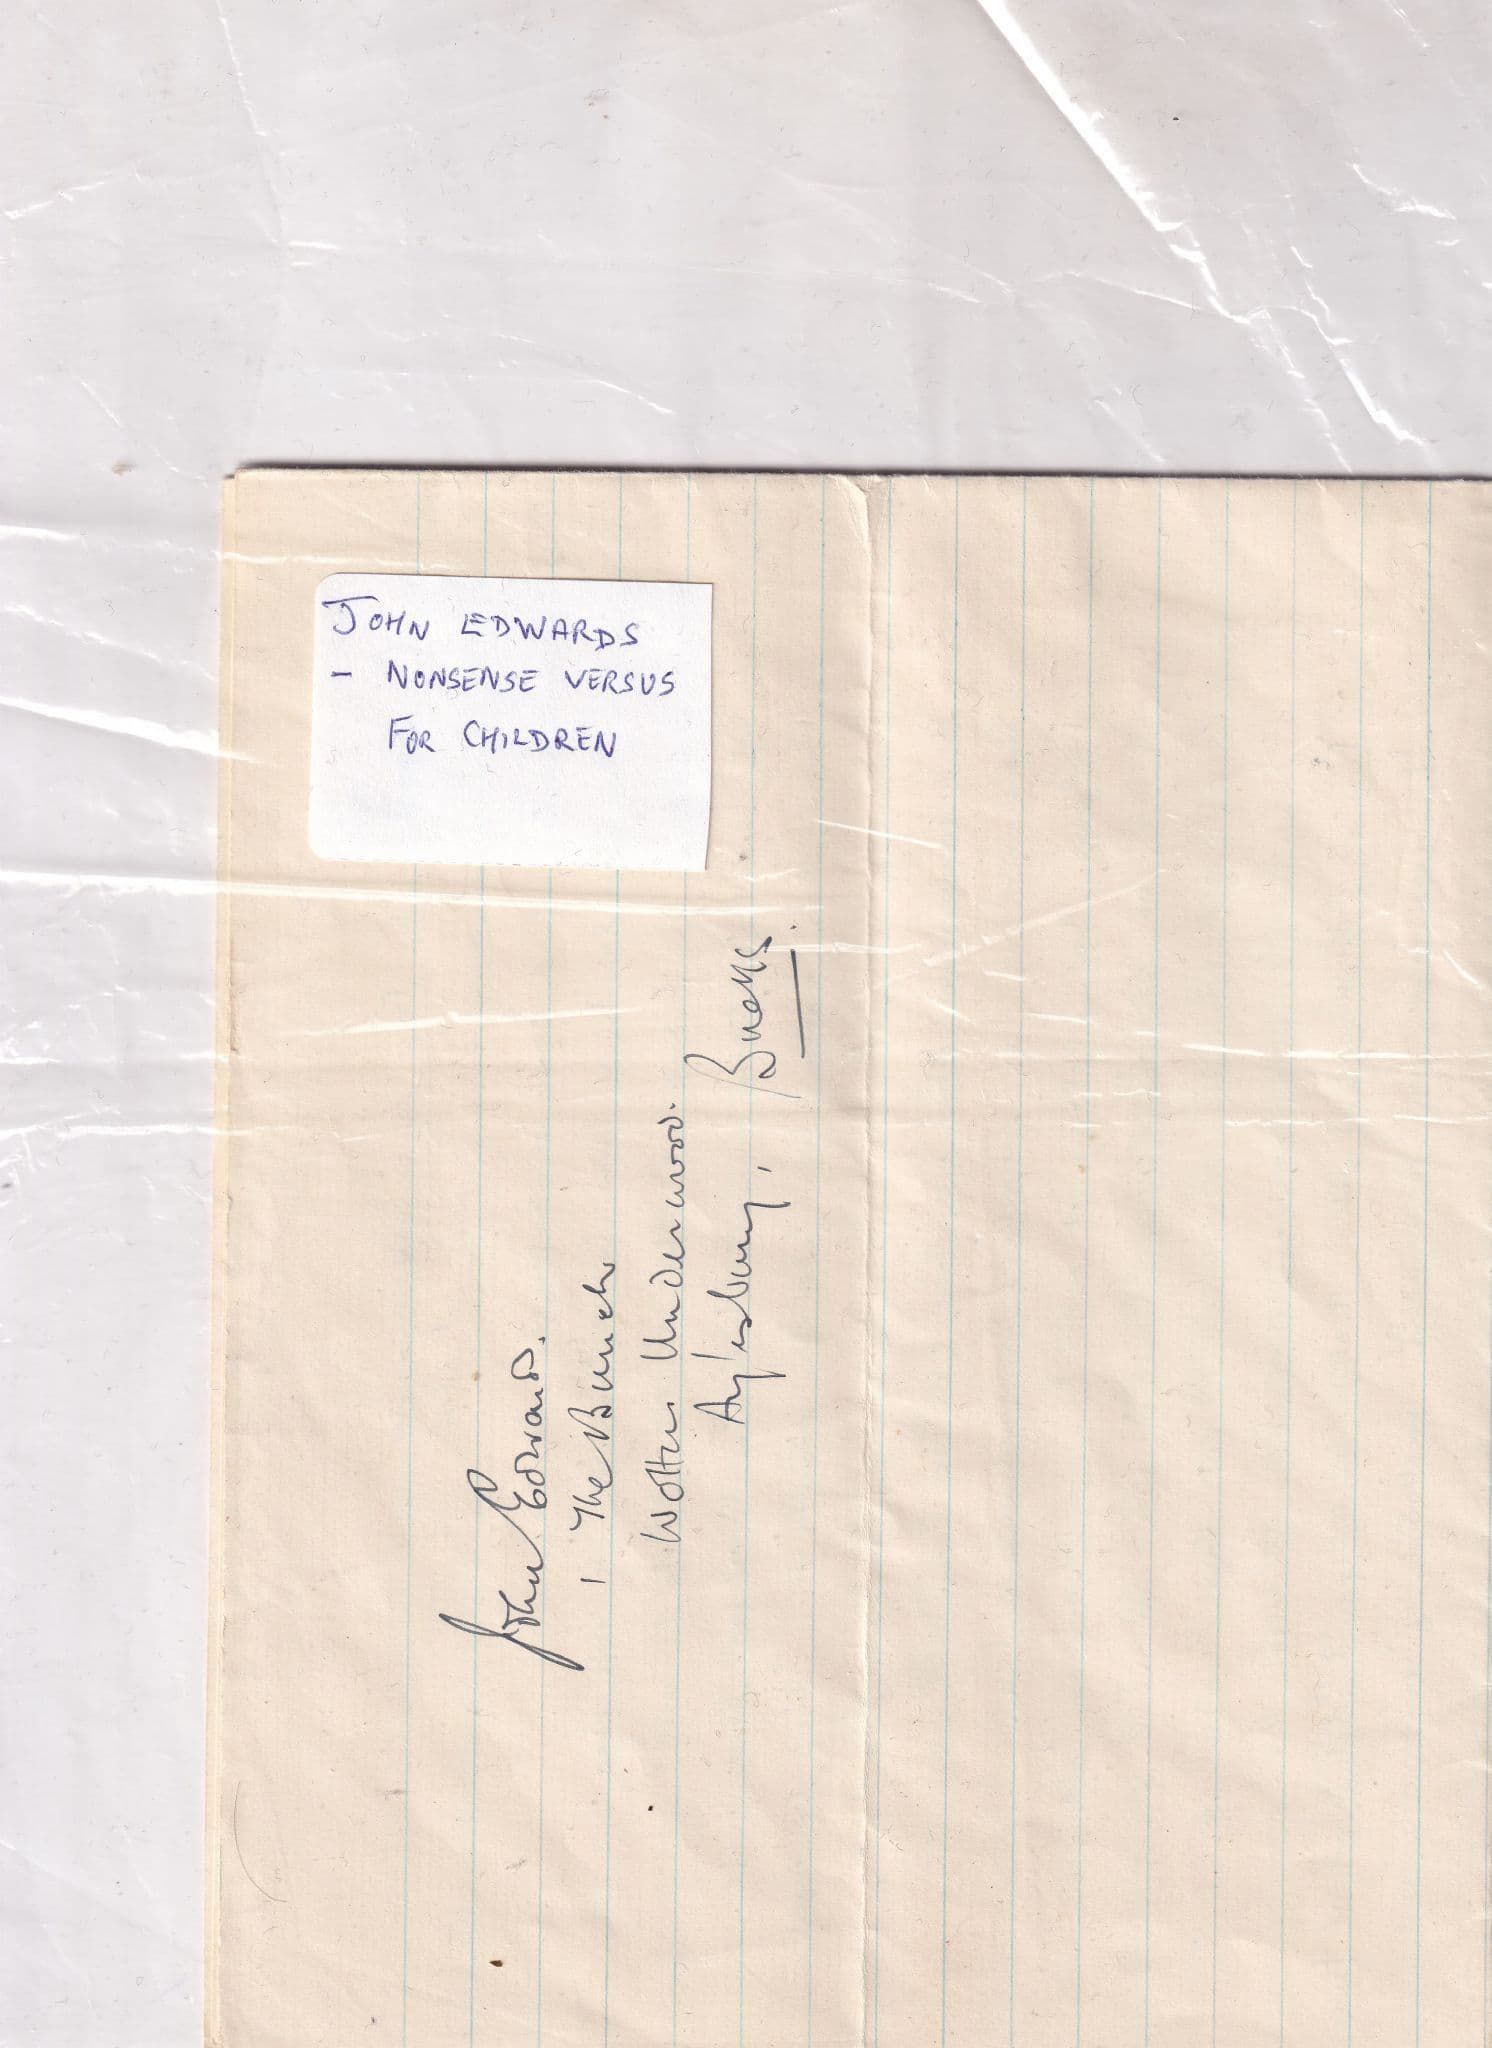 JOHN EDWARDS
- NONSENSE VERSUS
FOR CHILDREN
John Edwards.
1 The Bunch
Wotton Underwood.
Aylesbury, Bucks.